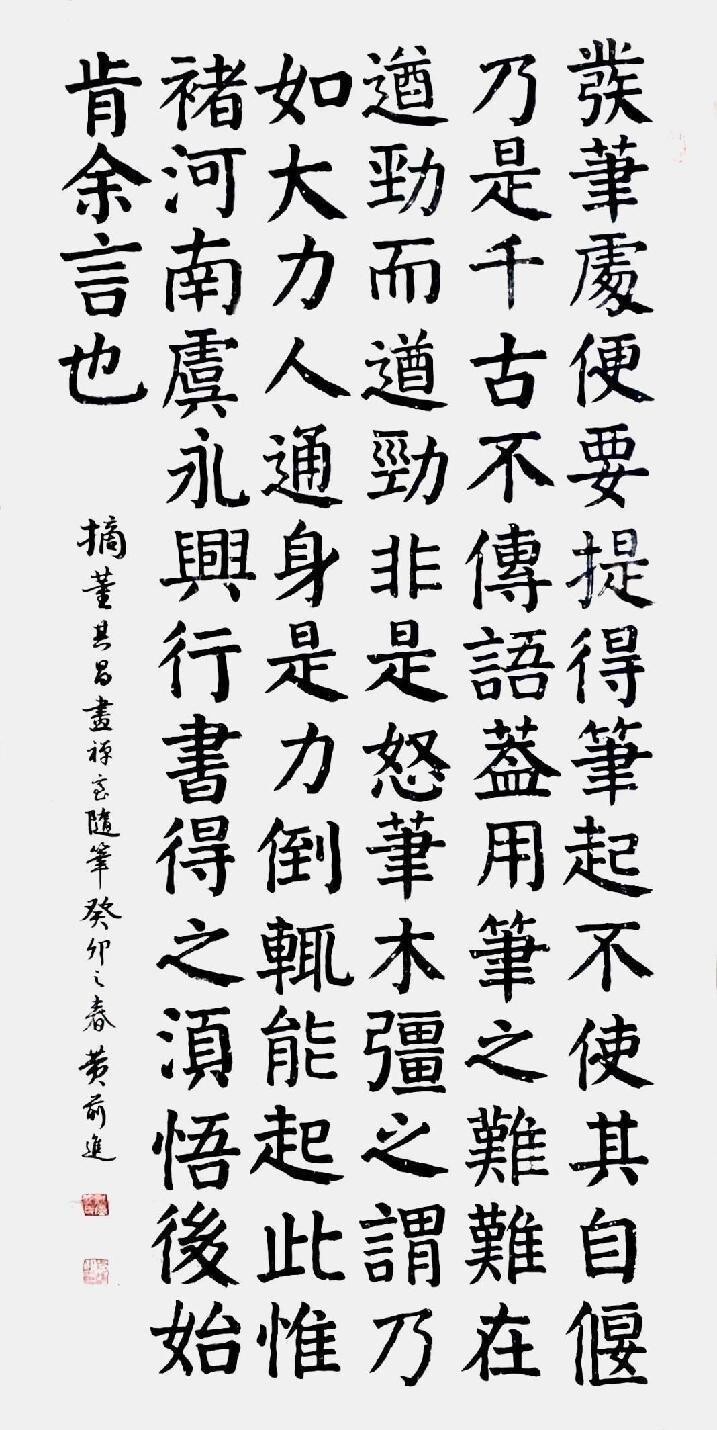 發筆處便要提得筆起不使其自偃
乃是千古不傳語蓋用筆之難難在
遒勁而遒勁非是怒筆木彊之謂乃
如大力人通身是力倒輒能起此惟
褚河南虞永興行書得之須悟後始
肯余言也
摘董其昌畫禪室隨筆癸卯之春黄前進